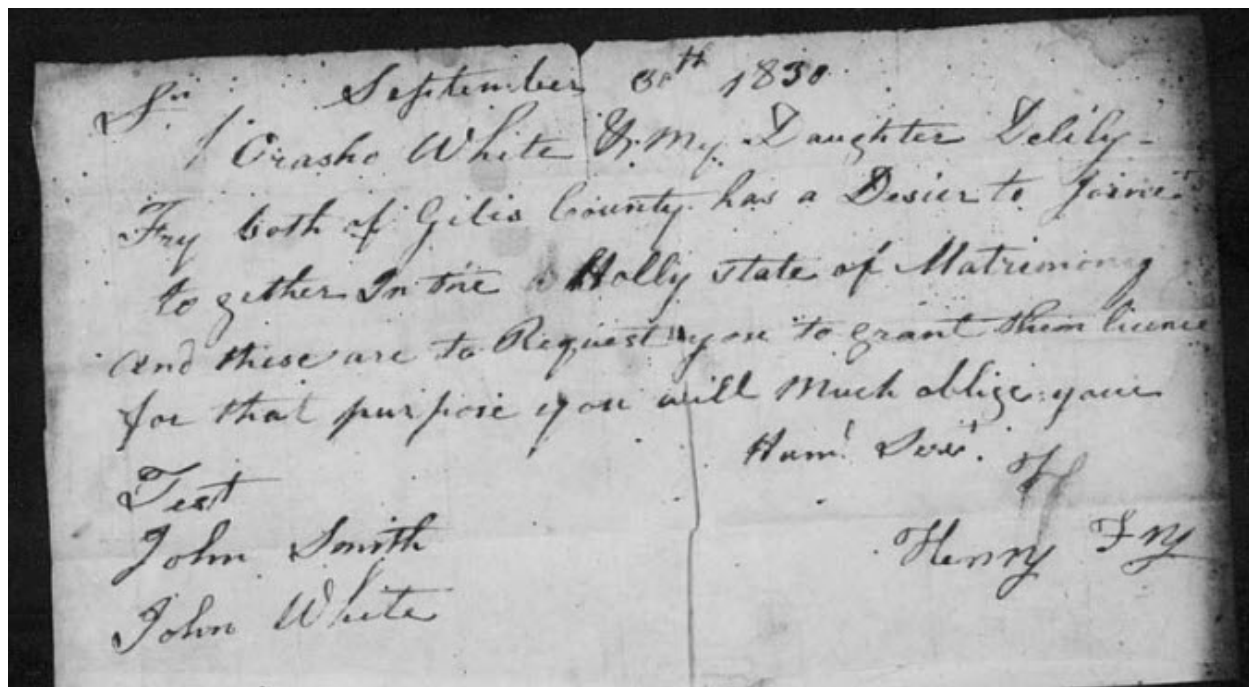 September 30th 1830
Sir
Orasho White & My Daughter Delily
Fry both of Gilis County has a Desier to Joine
to gether In the Holly state of Matrimony
and these are to Request you to grant them licence
for that purpose you will Much oblige your
Humᵗ Servᵗ.
Test
John Smith
Henry Fry
John White